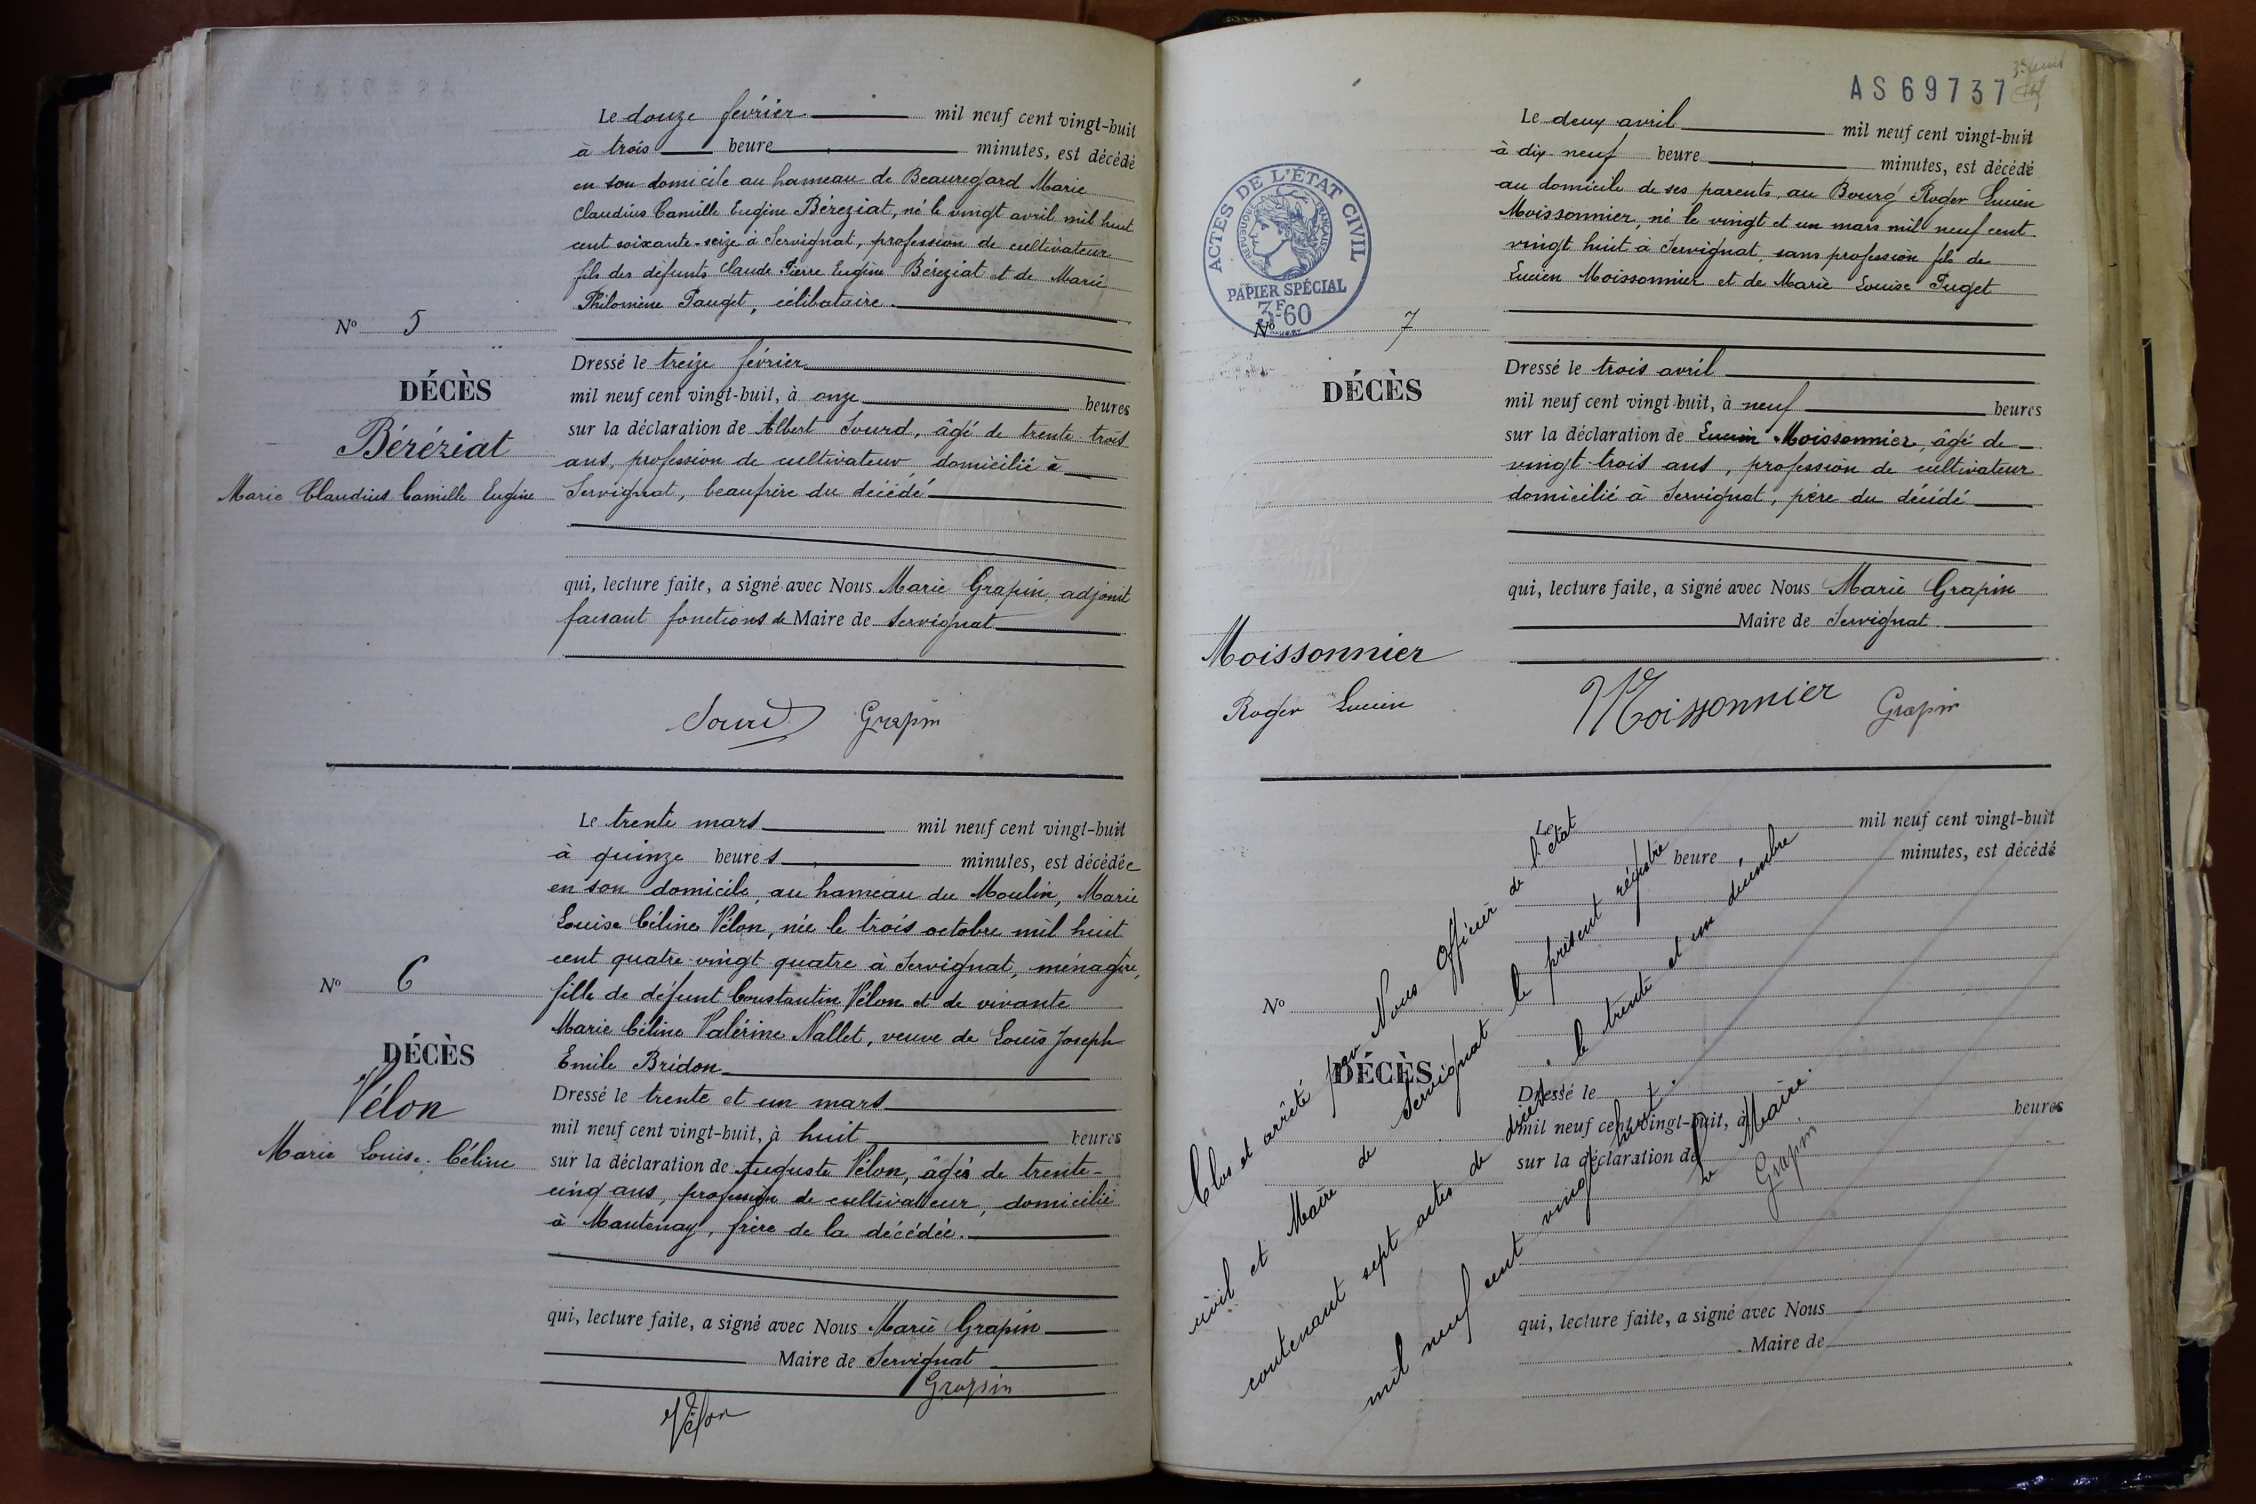 Le douze février mil neuf cent vingt-huit
à trois heure minutes, est décédé
en son domicile au hameau de Beauregard Marie
Claudius Camille Eugène Béreziat, né le vingt avril mil huit
cent soixante-seize à Servignat, profession de cultivateur
fils des défunts Claude Pierre Eugène Béreziat et de Marie
Philomène Pauget, célibataire.
No 5
Dressé le treize février
DÉCÈS
mil neuf cent vingt-huit, à onze heures
sur la déclaration de Albert Sourd, âgé de trente-trois
Béréziat
ans, profession de cultivateur domicilié à
Marie Claudius Camille Eugène
Servignat, beaufrère du décédé
qui, lecture faite, a signé avec Nous Marie Grapin, adjoint
faisant fonctions de Maire de Servignat
Sourd Grapin
Le trente mars mil neuf cent vingt-huit
à quinze heures minutes, est décédée
en son domicile, au hameau du Moulin, Marie
Louise Céline Vélon, née le trois octobre mil huit
cent quatre-vingt quatre à Servignat, ménagère,
No 6
fille de défunt Constantin Vélon et de vivante
Marie Céline Valérine Nallet, veuve de Louis Joseph
DÉCÈS
Emile Bridon
Vélon
Dressé le trente et un mars
mil neuf cent vingt-huit, à huit heures
Marie Louise Céline
sur la déclaration de Auguste Vélon, âgé de trente-
cinq ans, profession de cultivateur, domicilié
à Mantenay, frère de la décédée.
qui, lecture faite, a signé avec Nous Marie Grapin
Maire de Servignat
Grapin
Vélon
AS69737
Le deux avril mil neuf cent vingt-huit
à dix neuf heure minutes, est décédé
au domicile de ses parents, au Bourg Roger Lucien
Moissonnier, né le vingt et un mars mil neuf cent
vingt huit à Servignat, sans profession fils de
Lucien Moissonnier et de Marie Louise Puget
ACTES DE L'ÉTAT CIVIL
RÉPUBLIQUE FRANÇAISE
PAPIER SPÉCIAL
3F60
No 7
Dressé le trois avril
DÉCÈS
mil neuf cent vingt-huit, à neuf heures
sur la déclaration de Lucien Moissonnier, âgé de
vingt-trois ans, profession de cultivateur
domicilié à Servignat, père du décédé
qui, lecture faite, a signé avec Nous Marie Grapin
Maire de Servignat
Moissonnier
Roger Lucien
Moissonnier Grapin
Le mil neuf cent vingt-huit
heure minutes, est décédé
No
DÉCÈS
Dressé le
mil neuf cent vingt-huit, à heures
sur la déclaration de
qui, lecture faite, a signé avec Nous
Maire de
Clos et arrêté par Nous Officier de l'état
civil et Maire de Servignat le présent régistre
contenant sept actes de décès. le trente et un décembre
mil neuf cent vingt huit.
Le Maire.
Grapin